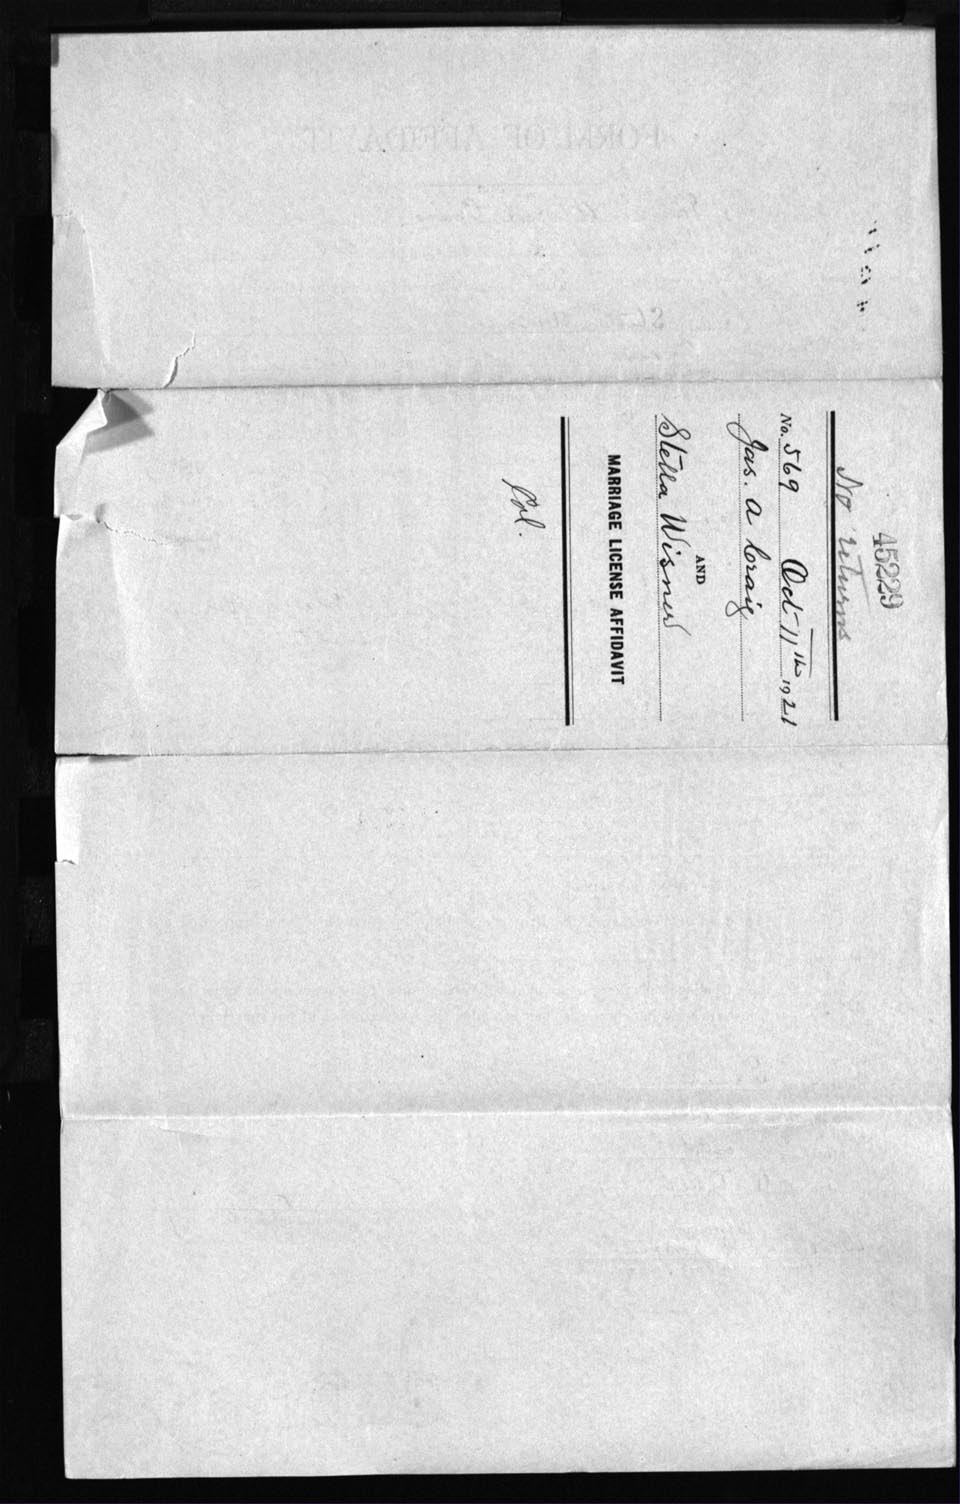 45229
No returns
No. 569 Oct 11th 1921
Jas. A Craig
AND
Stella Wisner
MARRIAGE LICENSE AFFIDAVIT
Col.
FORM OF AFFIDAVIT